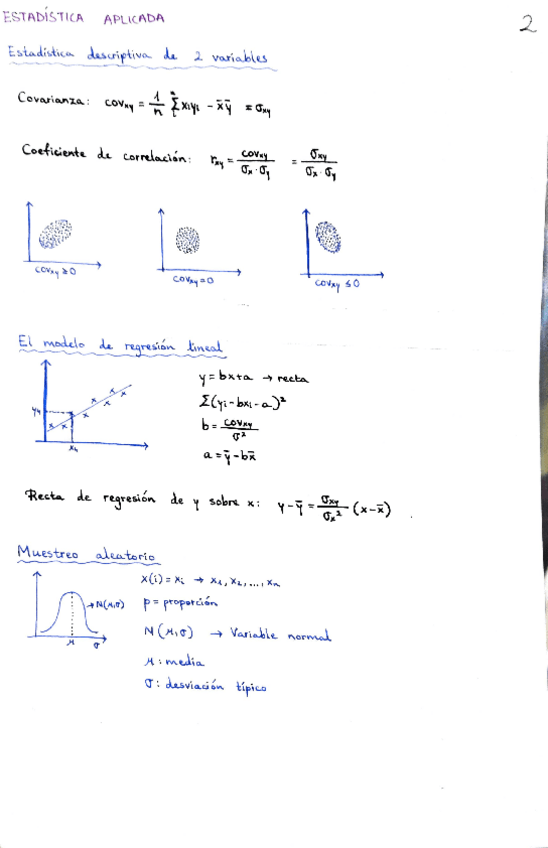 ESTADÍSTICA APLICADA
2
Estadística descriptiva de 2 variables
Covarianza: cov_xy = 1/n Σ x_i y_i - x̄ȳ = σ_xy
Coeficiente de correlación: r_xy = cov_xy / (σ_x · σ_y) = σ_xy / (σ_x · σ_y)
cov_xy ≥ 0
cov_xy = 0
cov_xy ≤ 0
El modelo de regresión lineal
y = bx + a → recta
Σ(y_i - bx_i - a)²
b = cov_xy / σ²
a = ȳ - bx̄
y_4
x_4
Recta de regresión de y sobre x: y - ȳ = σ_xy / σ_x² (x - x̄)
Muestreo aleatorio
x(i) = x_i → x_1, x_2, ..., x_n
→ N(μ,σ)
p = proporción
N(μ,σ) → Variable normal
μ
σ
μ: media
σ: desviación típico